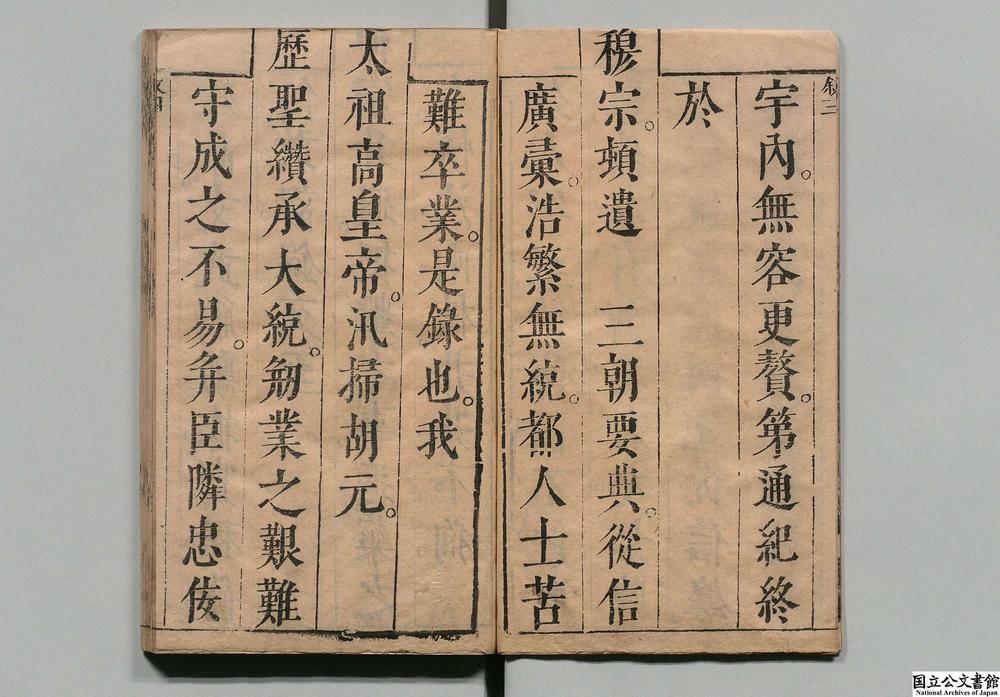 宇內。無容更贅。第通紀終
於
穆宗。頓遺　三朝要典。從信
廣彙。浩繁無統。都人士苦
難卒業。是錄也。我
太祖高皇帝。汛掃胡元。
歷聖纘承大統。剏業之艱難
守成之不易。弁臣隣忠侫
国立公文書館
National Archives of Japan